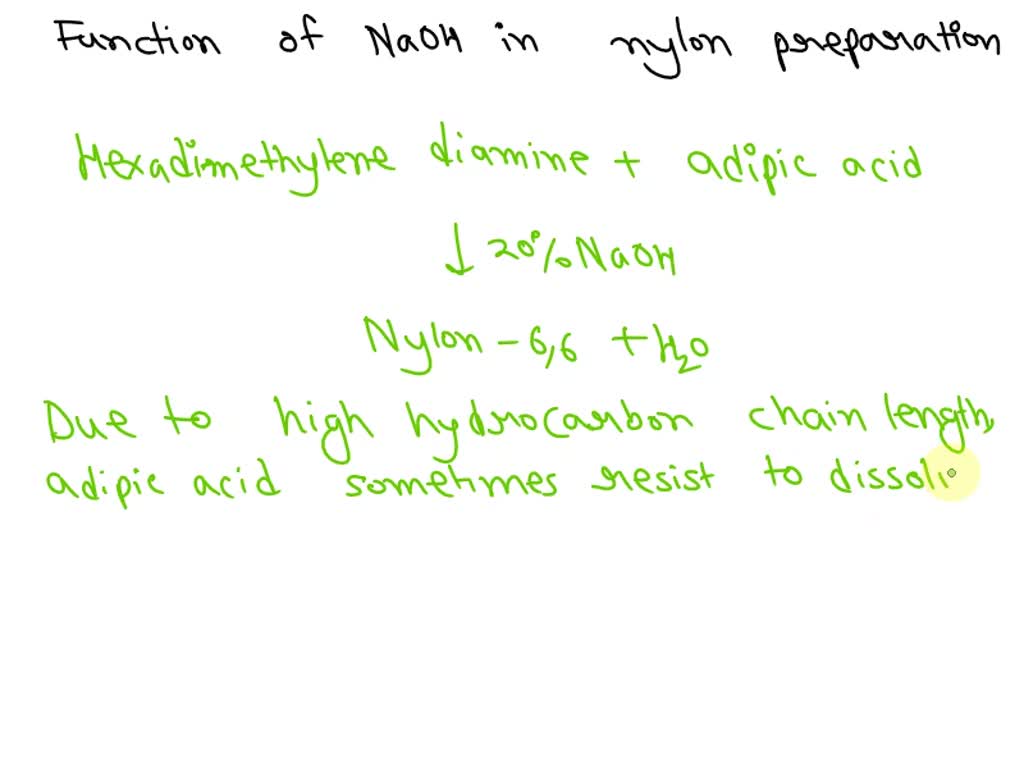 Function of NaOH in nylon preparation
Hexadimethylene diamine + adipic acid
↓ 20% NaOH
Nylon - 6,6 + H₂O
Due to high hydrocarbon chain length,
adipic acid sometimes resist to dissol